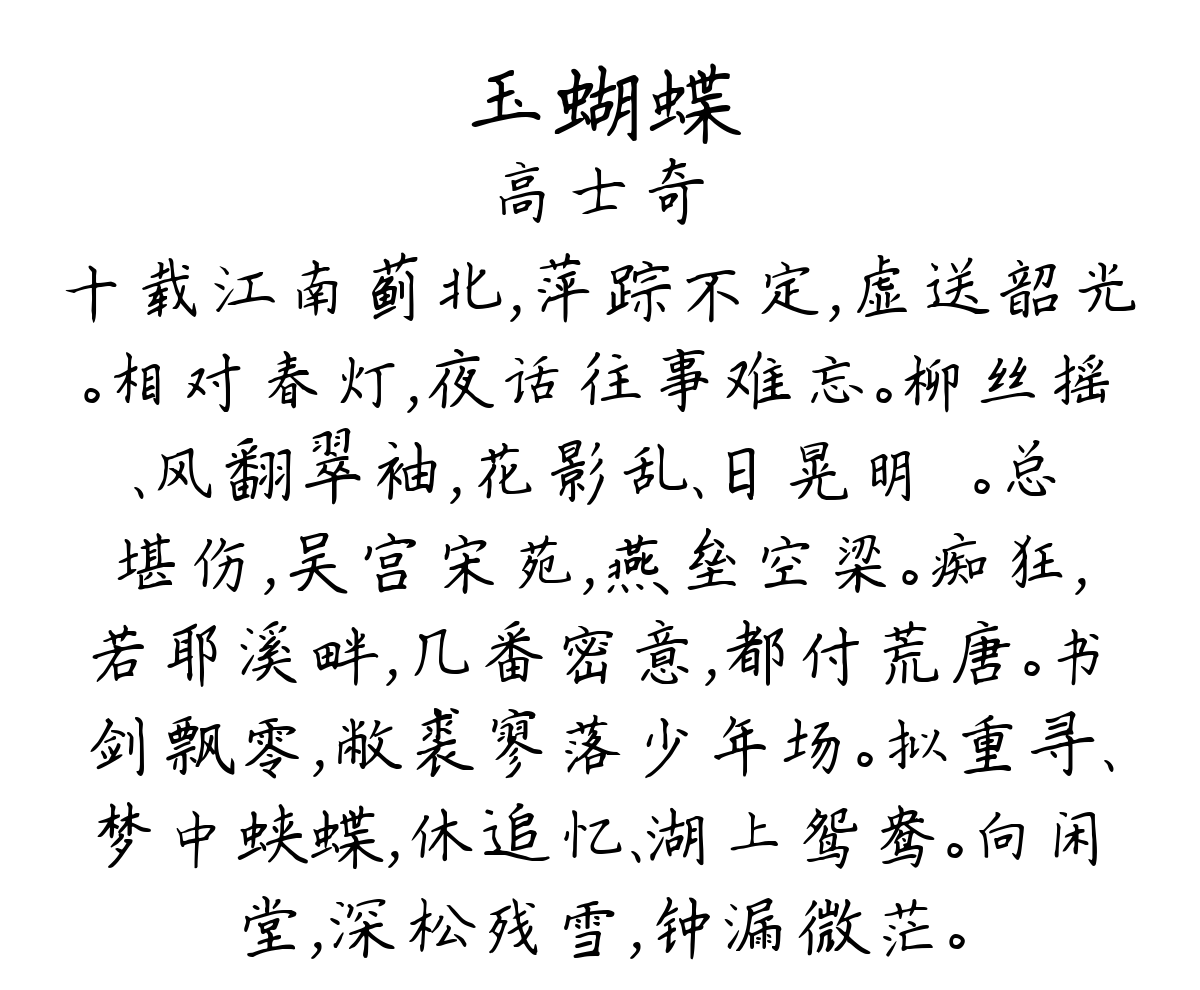 玉蝴蝶
高士奇
十载江南蓟北,萍踪不定,虚送韶光
。相对春灯,夜话往事难忘。柳丝摇
、风翻翠袖,花影乱、日晃明 。总
堪伤,吴宫宋苑,燕垒空梁。痴狂,
若耶溪畔,几番密意,都付荒唐。书
剑飘零,敝裘寥落少年场。拟重寻、
梦中蛱蝶,休追忆、湖上鸳鸯。向闲
堂,深松残雪,钟漏微茫。